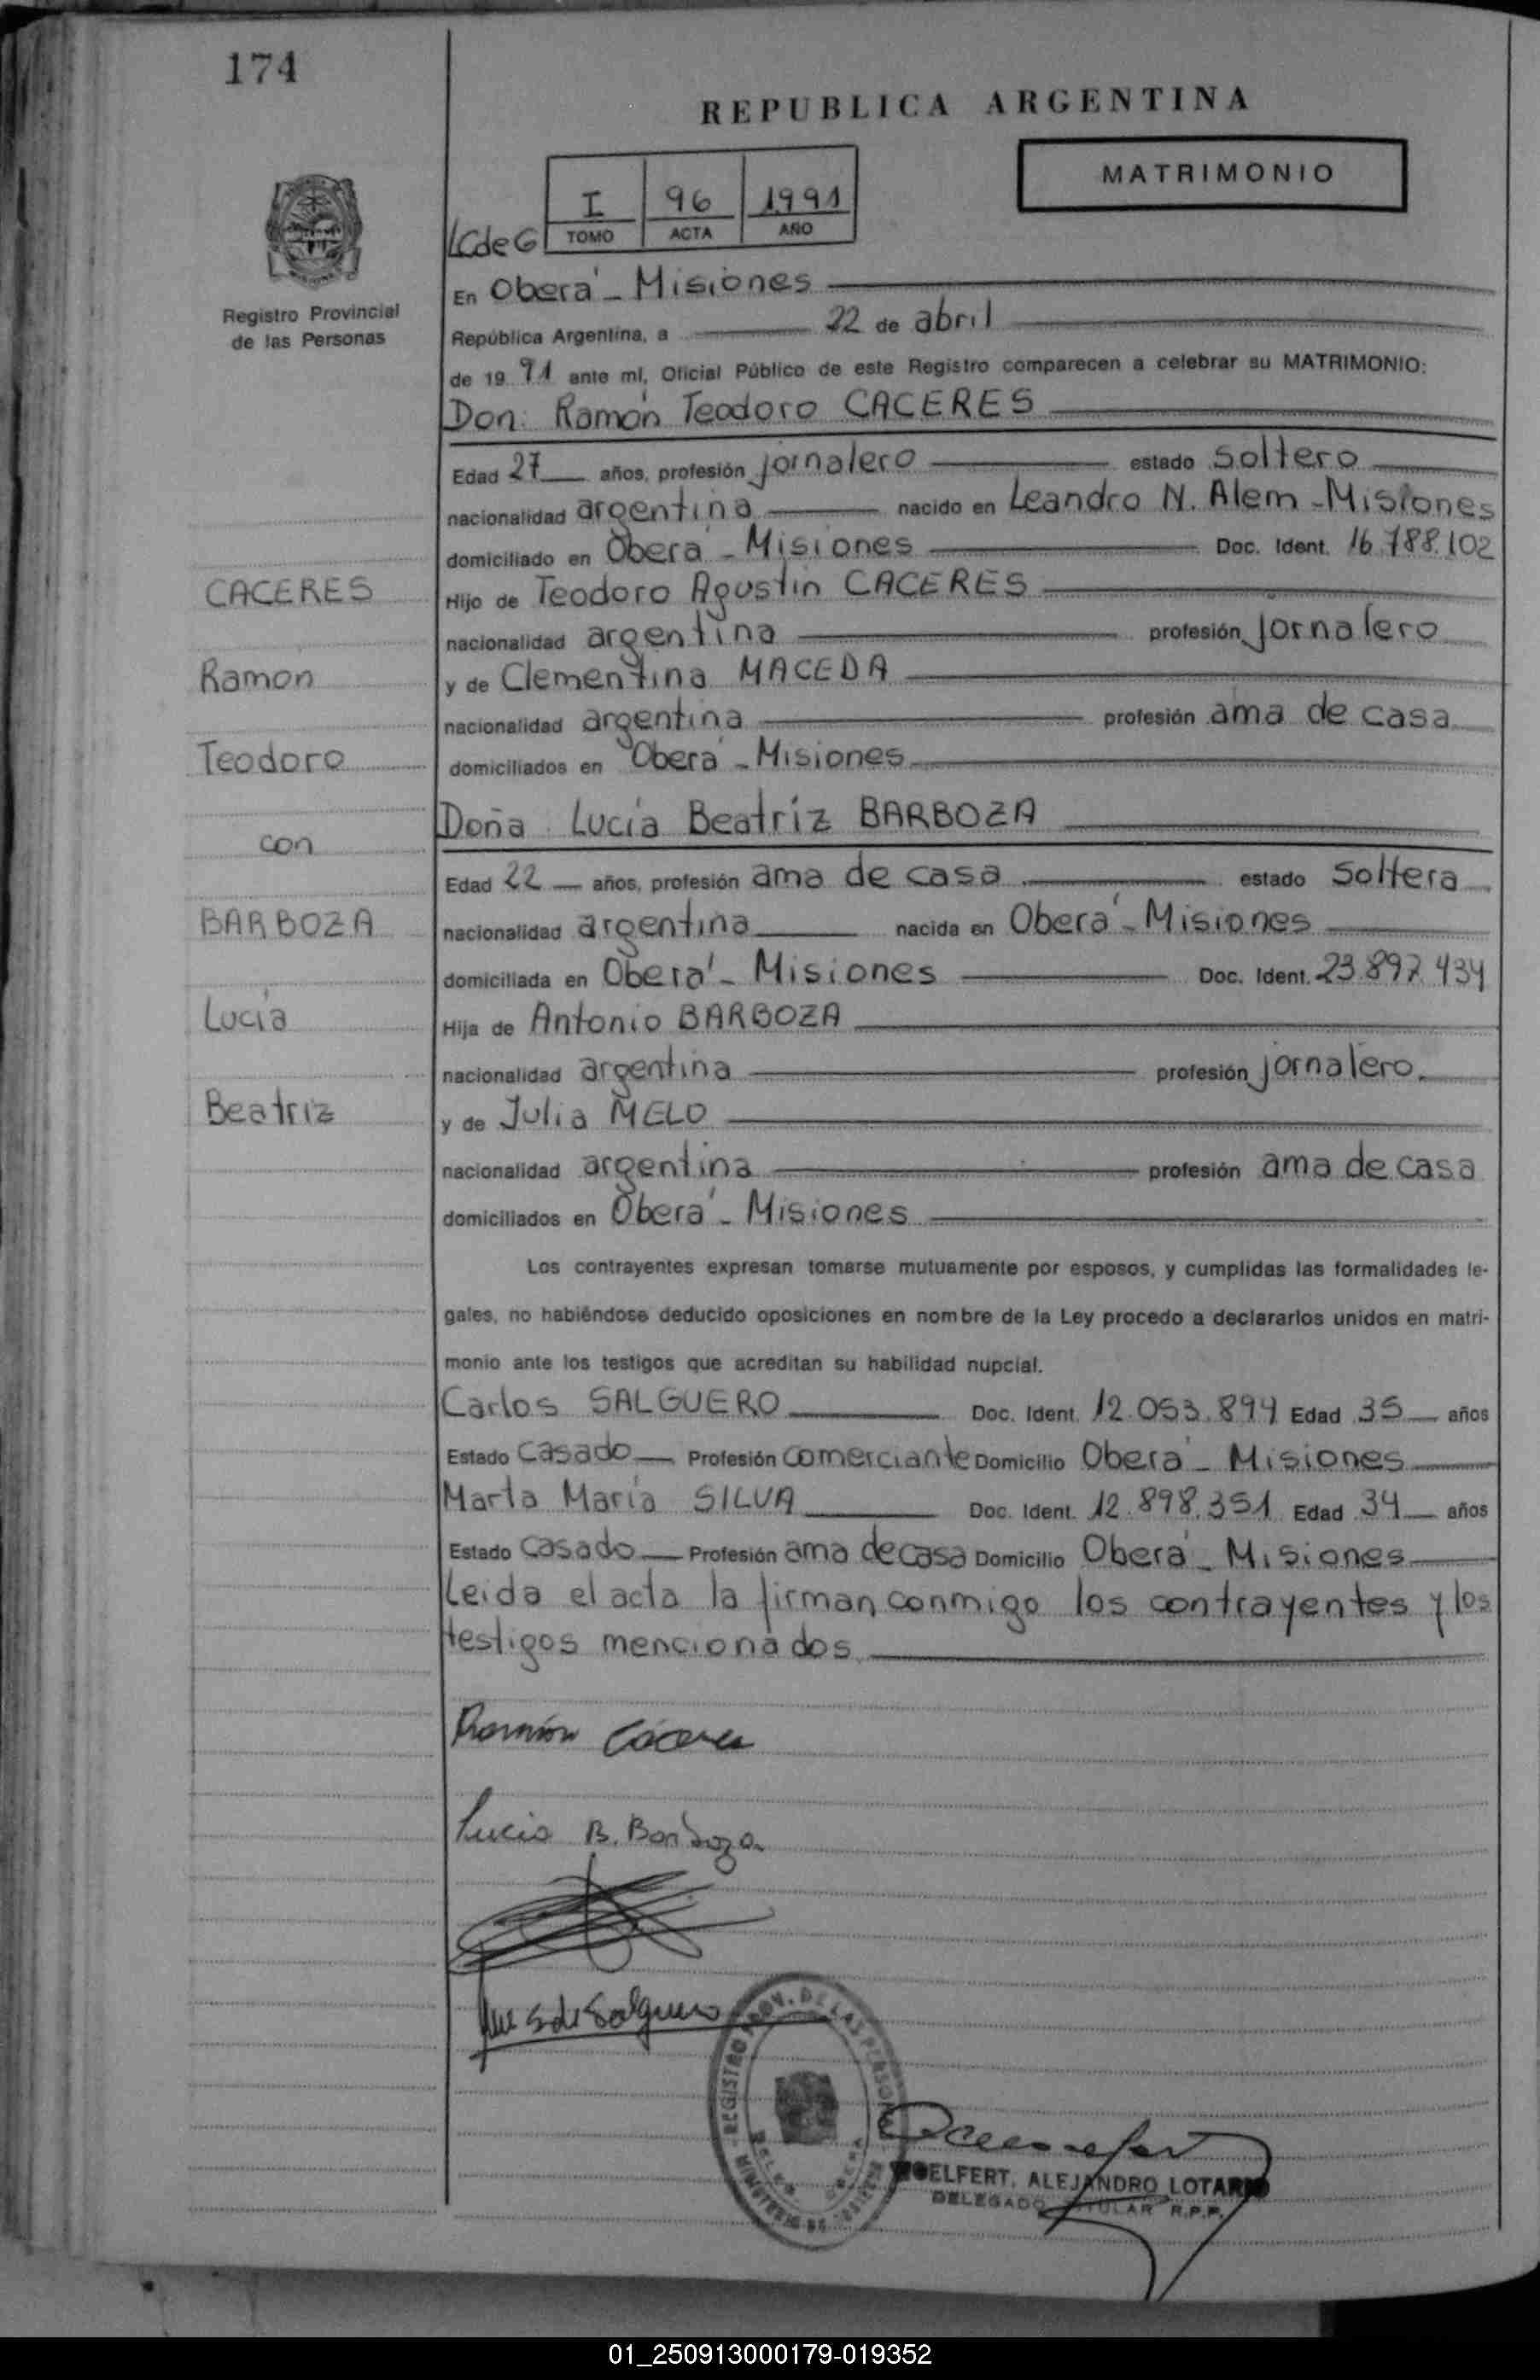 174
REPUBLICA ARGENTINA
MATRIMONIO
I 96 1991
LCdeG TOMO ACTA AÑO
Registro Provincial
de las Personas
En Oberá - Misiones
República Argentina, a 22 de abril
de 19 91 ante mí, Oficial Público de este Registro comparecen a celebrar su MATRIMONIO:
Don: Ramón Teodoro CACERES
Edad 27 años, profesión jornalero estado soltero
nacionalidad argentina nacido en Leandro N. Alem - Misiones
domiciliado en Oberá - Misiones Doc. Ident. 16.788.102
Hijo de Teodoro Agustin CACERES
nacionalidad argentina profesión jornalero
y de Clementina MACEDA
nacionalidad argentina profesión ama de casa
domiciliados en Oberá - Misiones
Doña Lucía Beatríz BARBOZA
Edad 22 años, profesión ama de casa estado soltera
nacionalidad argentina nacida en Oberá - Misiones
domiciliada en Oberá - Misiones Doc. Ident. 23.897.434
Hija de Antonio BARBOZA
nacionalidad argentina profesión jornalero
y de Julia MELO
nacionalidad argentina profesión ama de casa
domiciliados en Oberá - Misiones
CACERES
Ramón
Teodoro
con
BARBOZA
Lucía
Beatriz
Los contrayentes expresan tomarse mutuamente por esposos, y cumplidas las formalidades le-
gales, no habiéndose deducido oposiciones en nombre de la Ley procedo a declararlos unidos en matri-
monio ante los testigos que acreditan su habilidad nupcial.
Carlos SALGUERO Doc. Ident. 12.053.894 Edad 35 años
Estado casado Profesión comerciante Domicilio Oberá - Misiones
Marta María SILVA Doc. Ident. 12.898.351 Edad 34 años
Estado casado Profesión ama de casa Domicilio Oberá - Misiones
Leida el acta la firman conmigo los contrayentes y los
testigos mencionados
Ramón Cáceres
Lucia B. Barboza
S de Salguero
REGISTRO PROV. DE LAS PERSONAS
MINISTERIO DE
OELFERT, ALEJANDRO LOTARIO
DELEGADO TITULAR R.P.P.
01_250913000179-019352